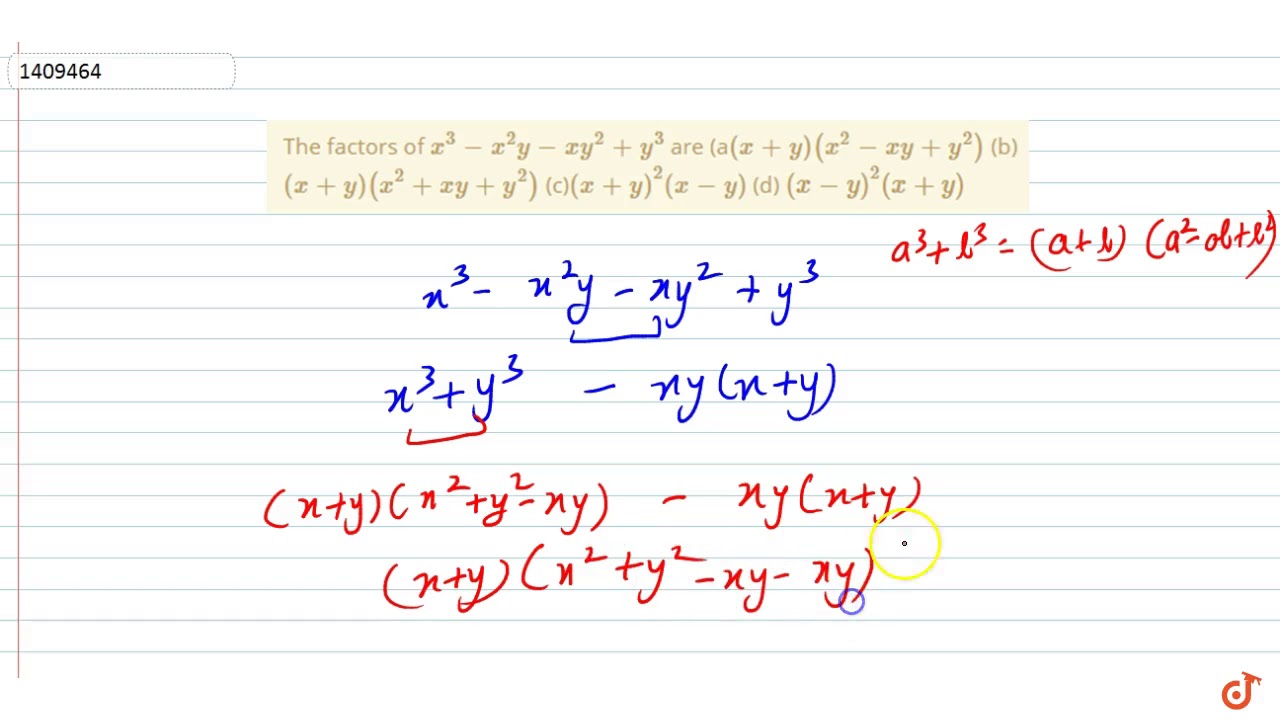 1409464
The factors of x³ − x²y − xy² + y³ are (a(x + y)(x² − xy + y²) (b)
(x + y)(x² + xy + y²) (c)(x + y)²(x − y) (d) (x − y)²(x + y)
a³ + b³ = (a + b) (a² − ab + b²)
x³ − x²y − xy² + y³
x³ + y³ − xy(x + y)
(x+y)(x² + y² − xy) − xy(x+y)
(x+y)(x² + y² − xy − xy)